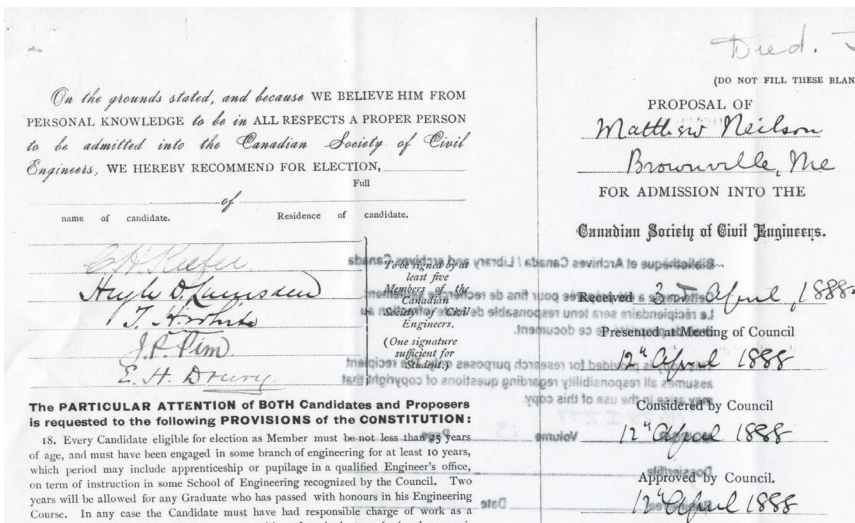 On the grounds stated, and because WE BELIEVE HIM FROM
PERSONAL KNOWLEDGE to be in ALL RESPECTS A PROPER PERSON
to be admitted into the Canadian Society of Civil
Engineers, WE HEREBY RECOMMEND FOR ELECTION,
Full
of
name of candidate. Residence of candidate.
C. H. Keefer
Hugh D. Lumsden
T. H. White
J. P. Pim.
E. H. Drury.
To be signed by at
least five
Members of the
Canadian
Society of Civil
Engineers.
(One signature
sufficient for
Student.)
The PARTICULAR ATTENTION of BOTH Candidates and Proposers
is requested to the following PROVISIONS of the CONSTITUTION:
18. Every Candidate eligible for election as Member must be not less than 25 years
of age, and must have been engaged in some branch of engineering for at least 10 years,
which period may include apprenticeship or pupilage in a qualified Engineer's office,
on term of instruction in some School of Engineering recognized by the Council. Two
years will be allowed for any Graduate who has passed with honours in his Engineering
Course. In any case the Candidate must have had responsible charge of work as a
Died.
(DO NOT FILL THESE BLAN
PROPOSAL OF
Matthew Neilson
Brownville, Me
FOR ADMISSION INTO THE
Canadian Society of Civil Engineers.
Received 3rd April, 1888
Presented at Meeting of Council
12th April 1888
Considered by Council
12th April 1888
Approved by Council.
12th April 1888
Bibliothèque et Archives Canada / Library and Archives Canada
Le récipiendaire sera tenu responsable de
ce document.
is provided for research purposes
recipient
assumes all responsibility regarding questions of copyright that
may arise in the use of this copy.
Volume
Dossier/file
Date